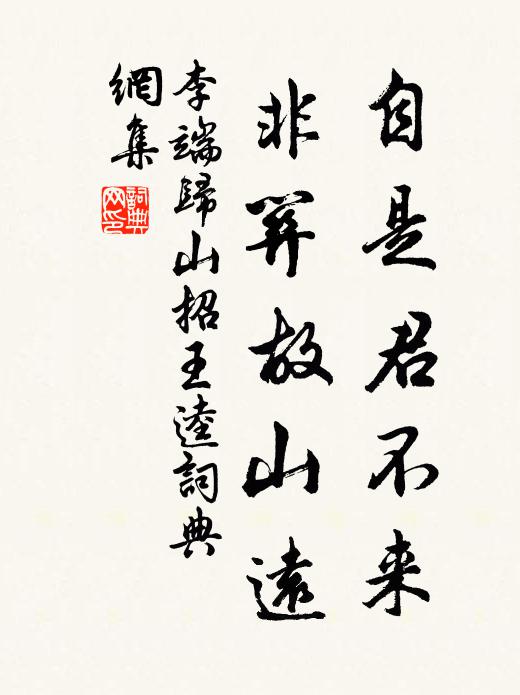 自是君不来
非關故山遠
李端歸山招王逵詞典
網集
詞典网印